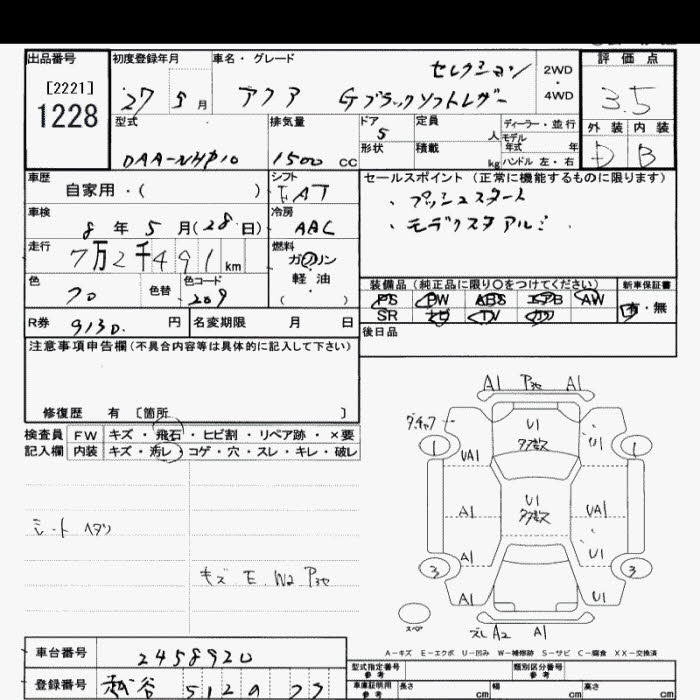 出品番号
[2221]
1228
初度登録年月
27 5月
車名・グレード
アクア Gブラックソフトレザー
セレクション
2WD
4WD
評価点
3.5
型式
DAA-NHP10
排気量
1500 cc
ドア
5
形状
定員
人
積載
kg
ディーラー・並行
モデル
年式 年
ハンドル 左・右
外装 内装
D B
車歴
自家用・( )
シフト
FAT
セールスポイント(正常に機能するものに限ります)
・プッシュスタート
・モデリスタアルミ
車検
8年5月(28日)
冷房
AAC
走行
7万2千491km
燃料
ガソリン
軽油
( )
色
クロ
色替
色コード
209
装備品(純正品に限り○をつけてください)
PS PW ABS エアB AW
SR ナビ TV カワ
新車保証書
有・無
R券 9130. 円
名変期限 月 日
後日品
注意事項申告欄(不具合内容等は具体的に記入して下さい)
修復歴 有 [箇所 ]
検査員 FW キズ・飛石・ヒビ割・リペア跡・×要
記入欄 内装 キズ・汚レ・コゲ・穴・スレ・キレ・破レ
シート ヘタリ
キズ E W2
A1 A1
U1
1 UA1 U1 1
U1
A1 UA1
A1 U1
3 3
A1 U1
スペア
ズレ A2 A1
A-キズ E-エクボ U-凹み W-補修跡 S-サビ C-腐食 XX-交換済
車台番号 2458920
登録番号 越谷 512
型式指定番号
参考
類別区分番号
参考
車庫証明用
参考
長さ cm
幅 cm
高さ cm